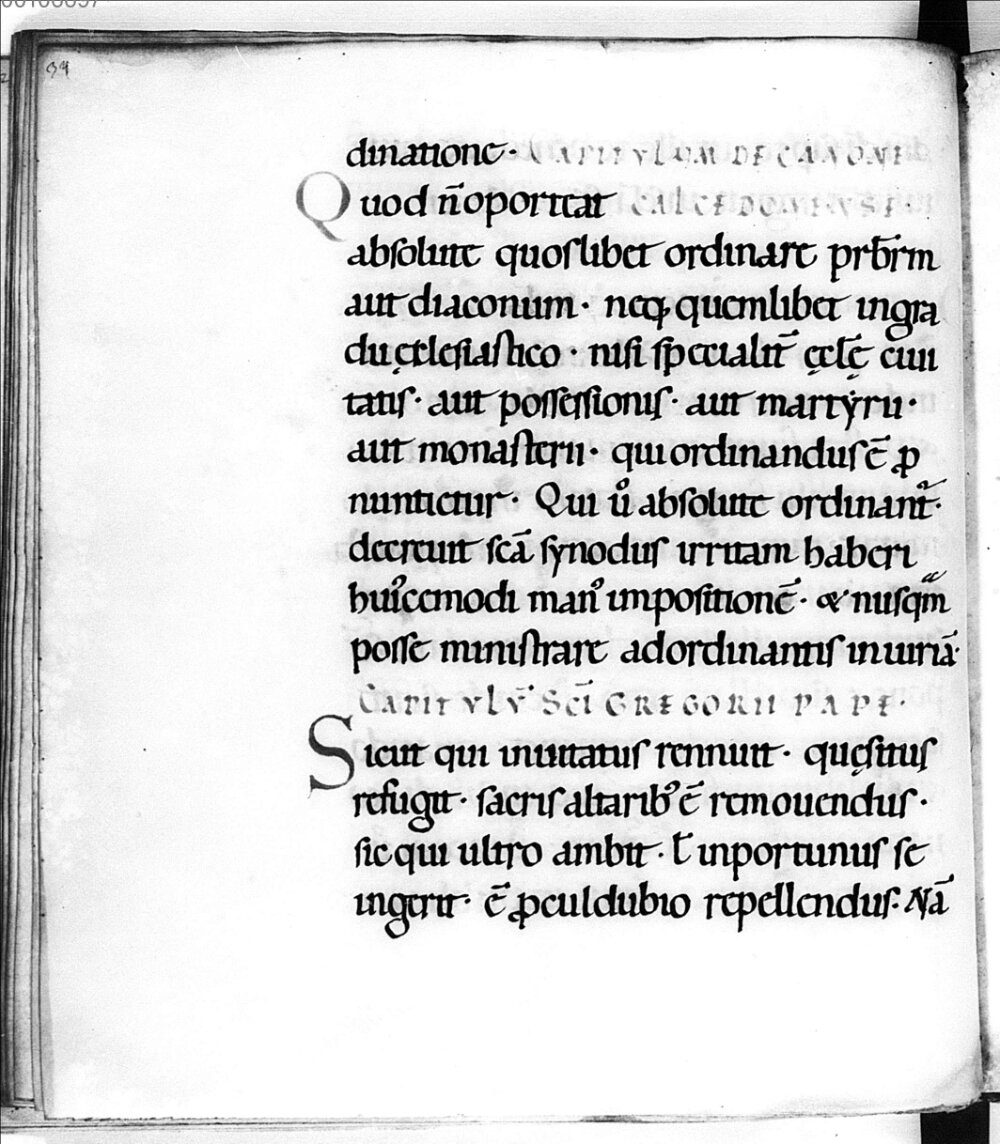 39
dinatione· CAPITVLVM DE CANONE
Quod n̄ oporteat CALCEDONENSE·
absolute quoslibet ordinare prb̄rm
aut diaconum· neq; quemlibet ingra
du ęcclesiastico· nisi specialit̄ ęcl̄ę ciui
tatis· aut possessionis· aut martyrii·
aut monasterii· qui ordinandus ē ꝓ
nuntietur· Qui ů absolute ordinant̄·
decreuit sc̄ā synodus irritam haberi
huiꝰcemodi manꝰ impositionē· & nusqᵃm
posse ministrare ad ordinantis iniuriā·
CAPITVLV̄ SC̄I GREGORII PAPE·
Sicut qui inuitatus rennuit· quęsitus
refugit· sacris altaribꝰ ē remouendus·
sic qui ultro ambit· ł inportunus se
ingerit· ē ꝓculdubio repellendus· Nā